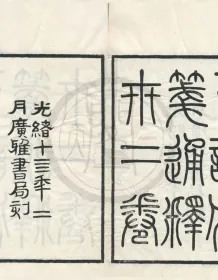 箋通釋
卅二卷
光緒十三年二
月廣雅書局刻